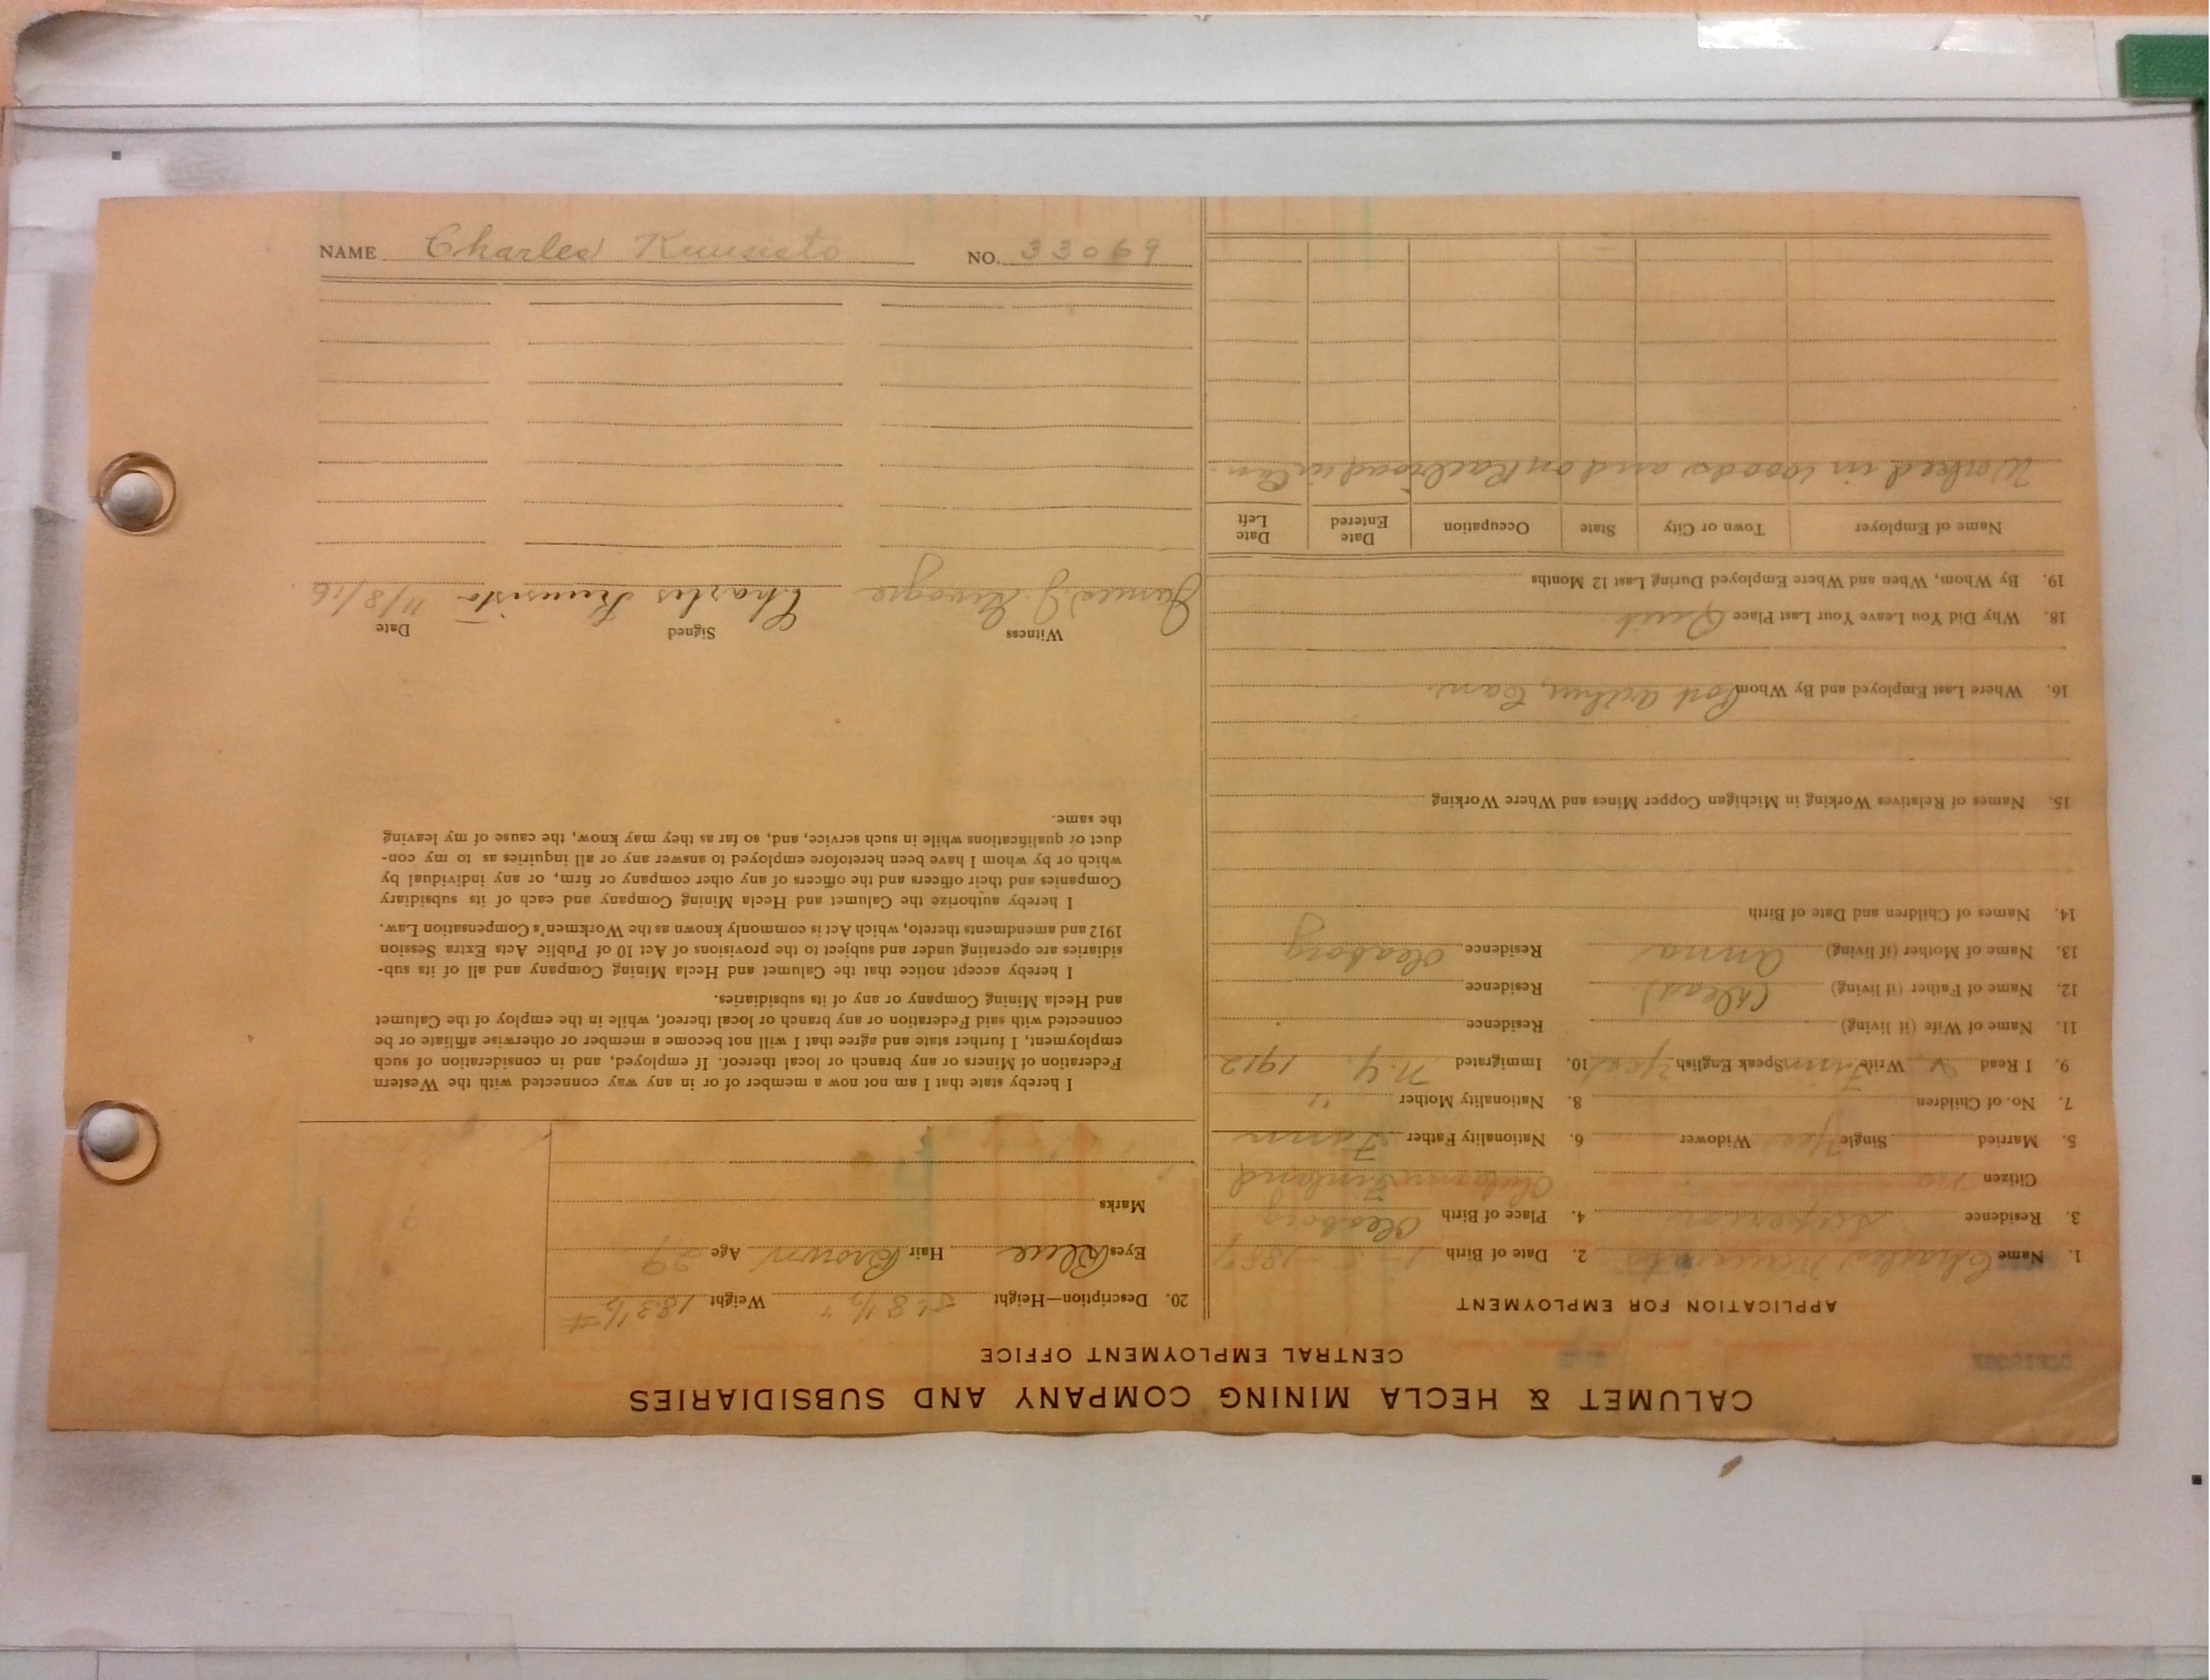 NAME Charles Kuusisto NO. 33069
CALUMET & HECLA MINING COMPANY AND SUBSIDIARIES
CENTRAL EMPLOYMENT OFFICE
APPLICATION FOR EMPLOYMENT
1. Name Charles Kuusisto 2. Date of Birth 1887
3. Residence Superior 4. Place of Birth Uleaborg
Citizen no Finland
5. Married Single Yes Widower 6. Nationality Father Finn
7. No. of Children 8. Nationality Mother "
9. I Read Write Finn Speak English 10. Immigrated N.Y. 1912
11. Name of Wife (if living) Residence
12. Name of Father (if living) (Dead) Residence
13. Name of Mother (if living) Anna Residence Uleaborg
14. Names of Children and Date of Birth
15. Names of Relatives Working in Michigan Copper Mines and Where Working
16. Where Last Employed and By Whom Port Arthur, Can.
18. Why Did You Leave Your Last Place Quit
19. By Whom, When and Where Employed During Last 12 Months
Name of Employer Town or City State Occupation Date Entered Date Left
Worked in woods and on Railroad in Can.
20. Description—Height 5' 8½" Weight 183½ #
Eyes Blue Hair Brown Age 29
Marks
I hereby state that I am not now a member of or in any way connected with the Western
Federation of Miners or any branch or local thereof. If employed, and in consideration of such
employment, I further state and agree that I will not become a member or otherwise affiliate or be
connected with said Federation or any branch or local thereof, while in the employ of the Calumet
and Hecla Mining Company or any of its subsidiaries.
I hereby accept notice that the Calumet and Hecla Mining Company and all of its sub-
sidiaries are operating under and subject to the provisions of Act 10 of Public Acts Extra Session
1912 and amendments thereto, which Act is commonly known as the Workmen's Compensation Law.
I hereby authorize the Calumet and Hecla Mining Company and each of its subsidiary
Companies and their officers and the officers of any other company or firm, or any individual by
which or by whom I have been heretofore employed to answer any or all inquiries as to my con-
duct or qualifications while in such service, and, so far as they may know, the cause of my leaving
the same.
Witness Signed Date
James J. Charles Kuusisto 11/8/16